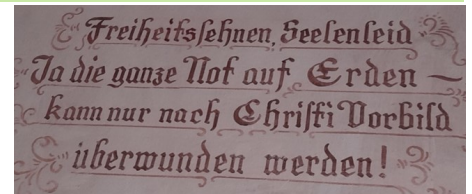 Freiheitssehnen, Seelenleid
Ja die ganze Not auf Erden –
kann nur nach Christi Vorbild
überwunden werden!